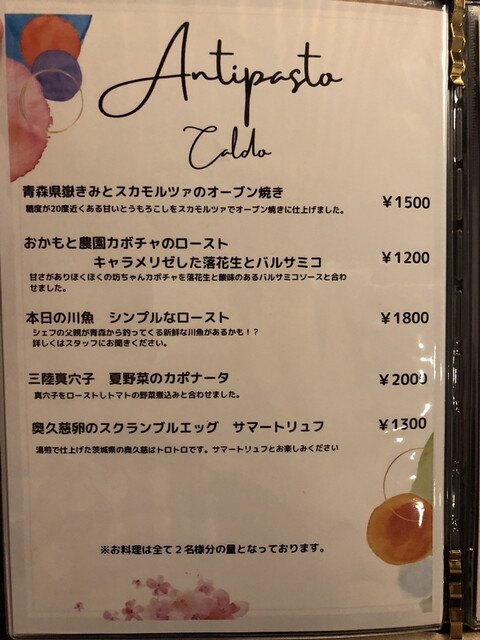 Antipasto
Caldo
青森県嶽きみとスカモルツァのオーブン焼き
¥1500
糖度が20度近くある甘いとうもろこしをスカモルツァでオーブン焼きに仕上げました。
おかもと農園カボチャのロースト
キャラメリゼした落花生とバルサミコ
¥1200
甘さがありほくほくの坊ちゃんカボチャを落花生と酸味のあるバルサミコソースと合わ
せました。
本日の川魚 シンプルなロースト
¥1800
シェフの父親が青森から釣ってくる新鮮な川魚があるかも！？
詳しくはスタッフにお聞きください。
三陸真穴子 夏野菜のカポナータ
¥2000
真穴子をローストしトマトの野菜煮込みと合わせました。
奥久慈卵のスクランブルエッグ サマートリュフ
¥1300
湯煎で仕上げた茨城県の奥久慈はトロトロです。サマートリュフとお楽しみください
※お料理は全て２名様分の量となっております。